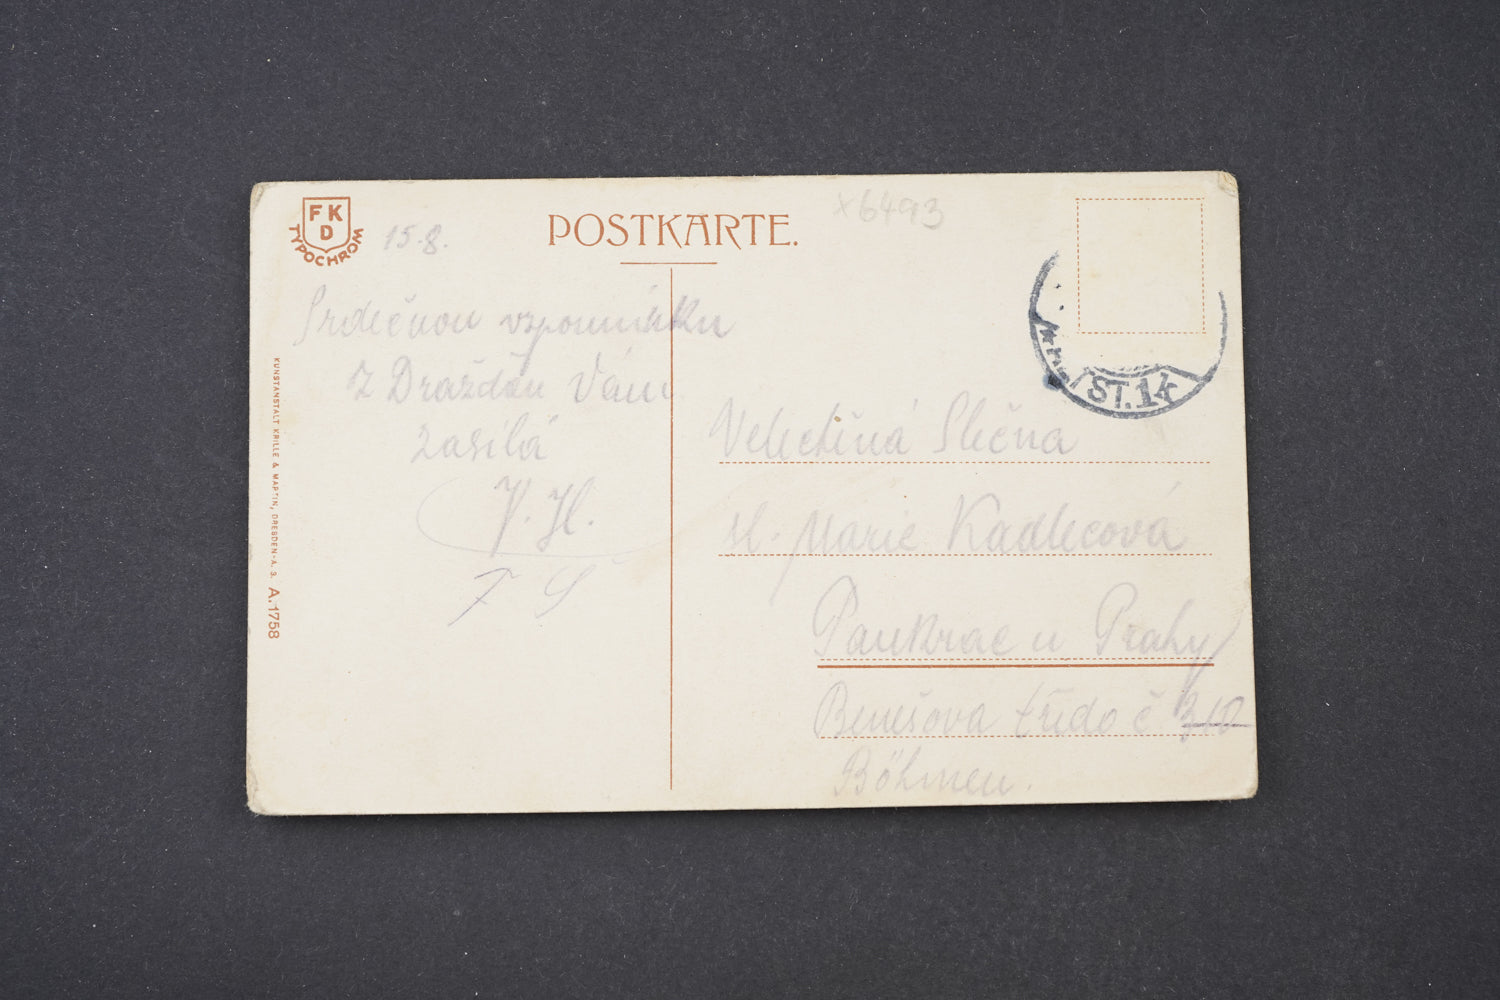 FK
D
TYPOCHROM
15.8.
POSTKARTE.
x6493
ST. 14
Srdečnou vzpomínku
z Dražďan Vám
zasílá
V. H.
F S
KUNSTANSTALT KRILLE & MARTIN, DRESDEN-A. 3. A. 1758
Velectěná Slečna
sl. Marie Kadlecová
Pankrac u Prahy
Benešova třída č
Böhmen.